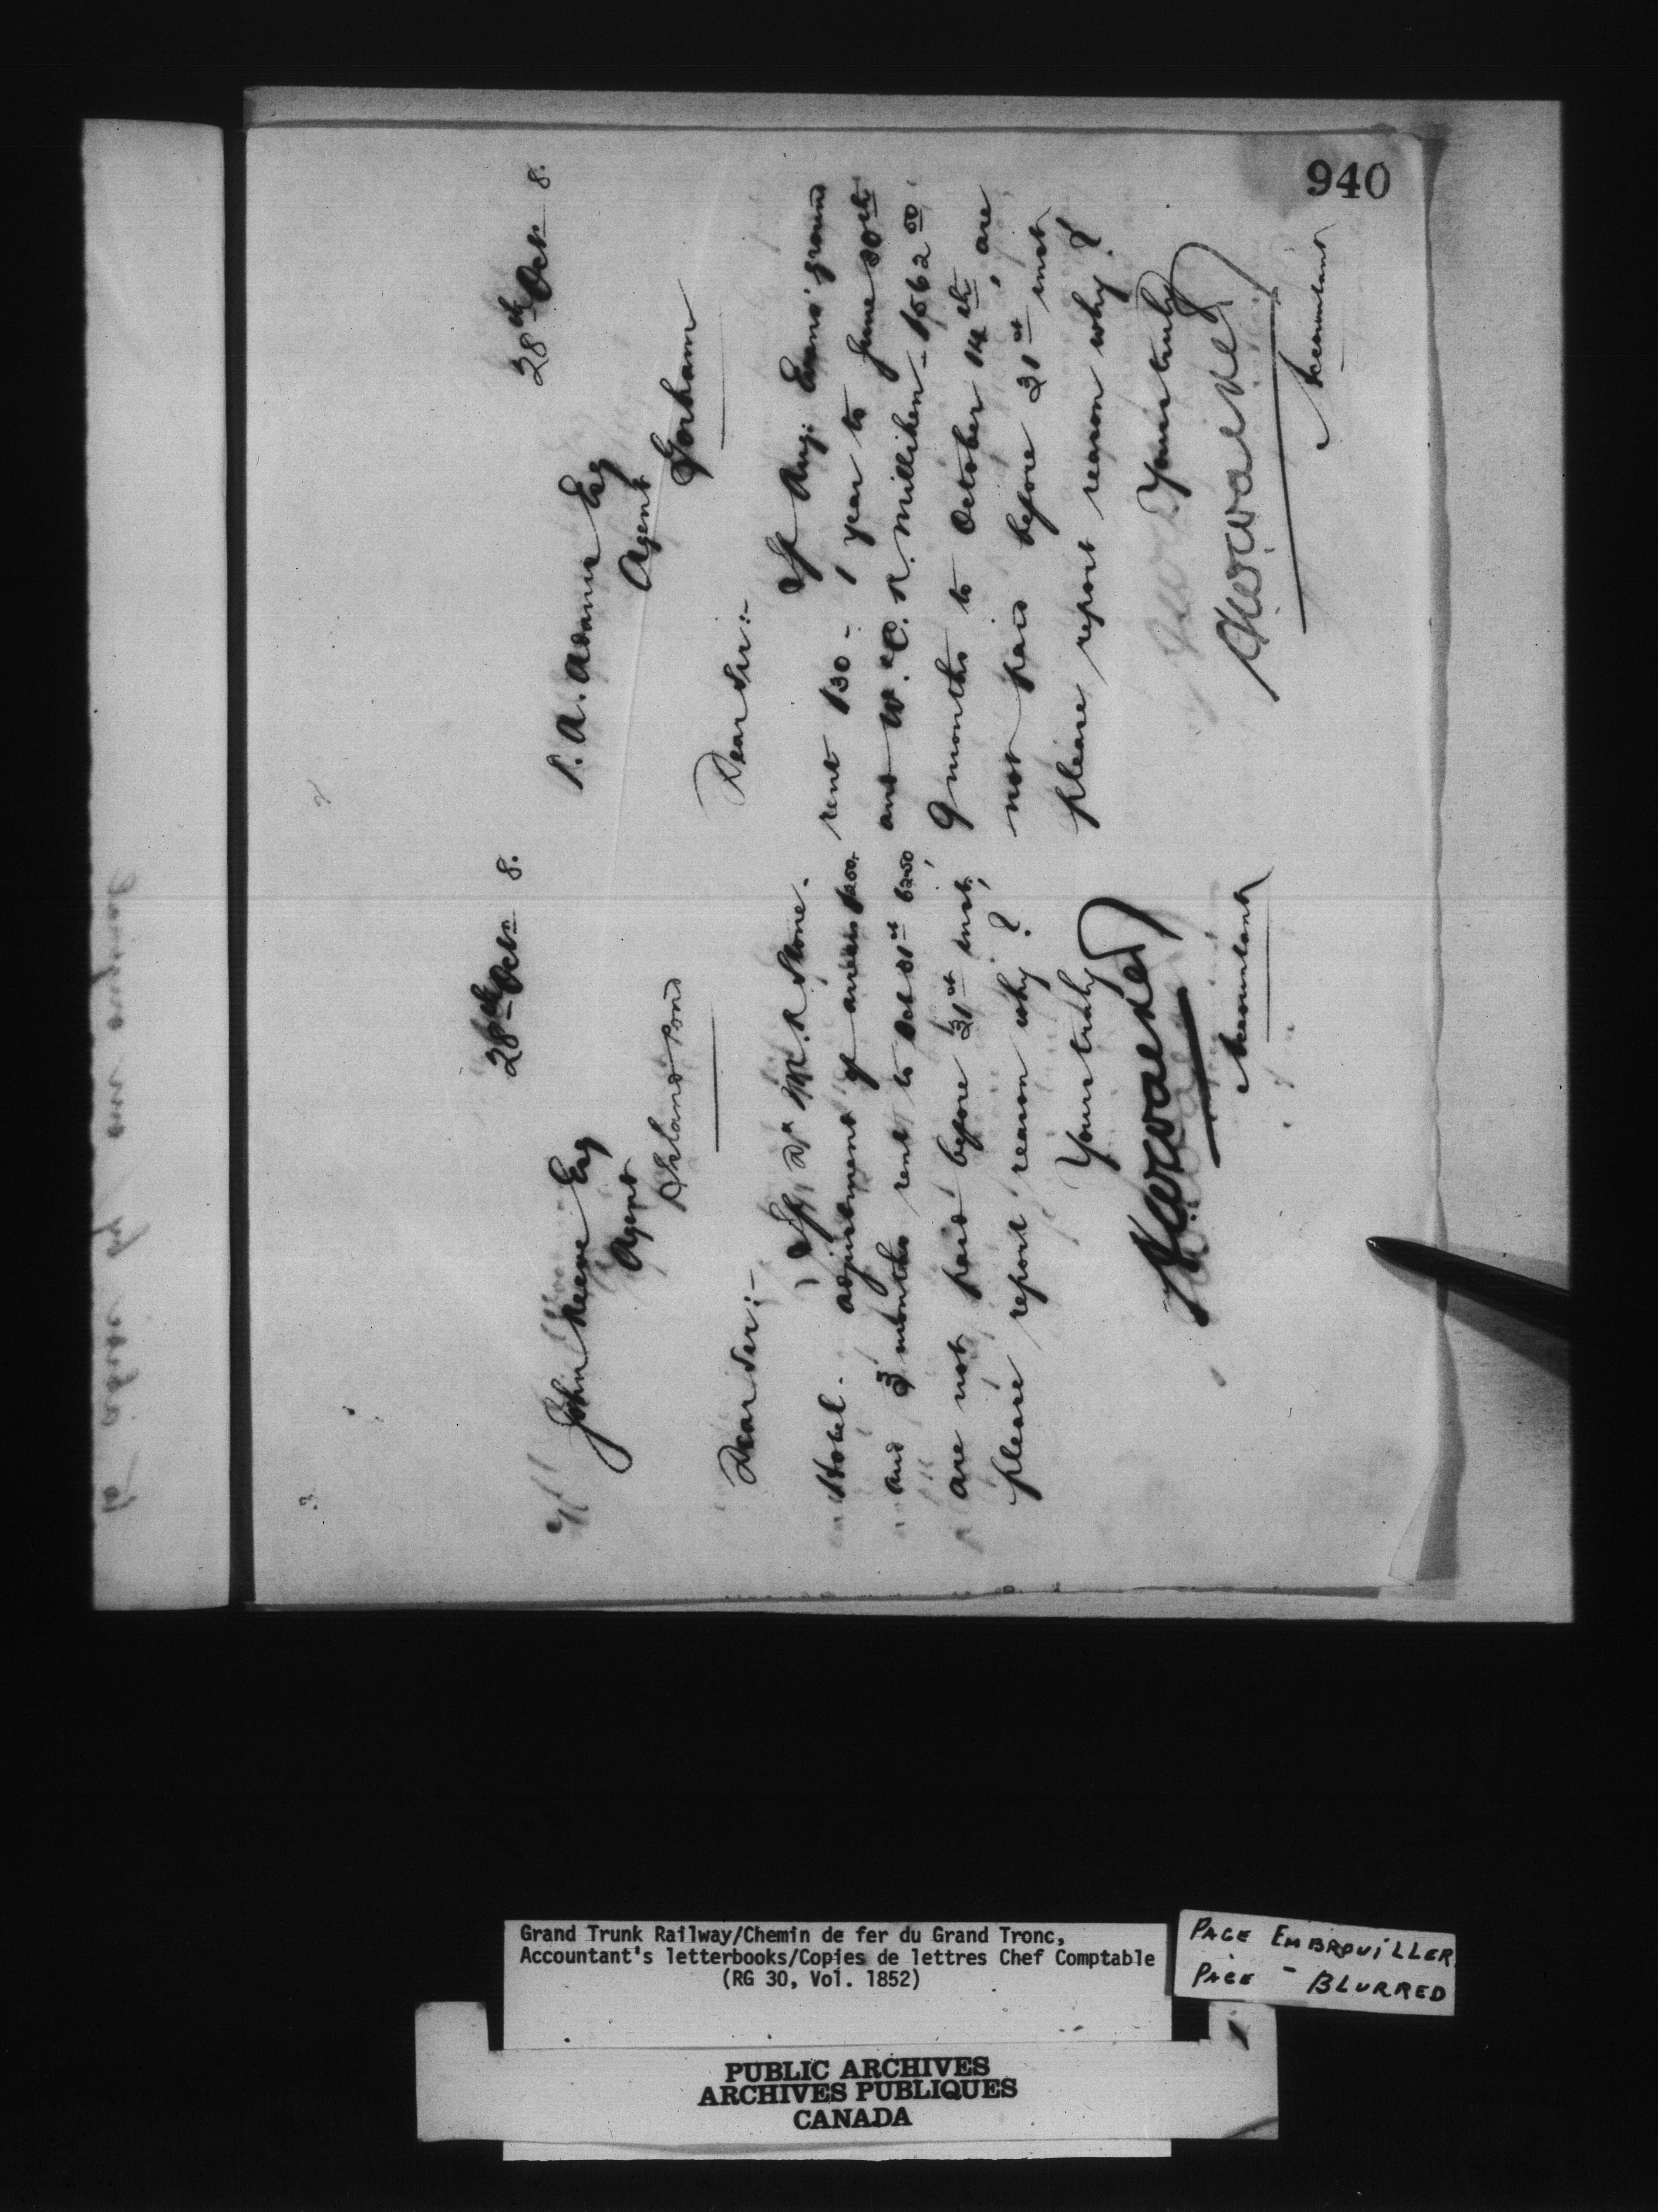 940
28th Octr 8.
John Reeve Esq
Agent
Island Pond
Dear Sir:-
If Dr M. R. Stone.
Hotel. adjustment of arrears $200.
and 3 months rent to Oct 31st 62.50,
are not paid before 31st inst,
please report reason why?
Yours truly
Accountant
28th Octr 8.
P. A. Adams Esq
Agent
Gorham
Dear Sir:-
If Aug. Evans' ground
rent $30 - 1 year to June 30th
and W. & C. R. Milliken - $562.50,
9 months to October 14th, are
not paid before 31st inst
please report reason why?
Yours truly
Accountant
Grand Trunk Railway/Chemin de fer du Grand Tronc,
Accountant's letterbooks/Copies de lettres Chef Comptable
(RG 30, Vol. 1852)
PAGE EMBROUILLER
PAGE - BLURRED
PUBLIC ARCHIVES
ARCHIVES PUBLIQUES
CANADA